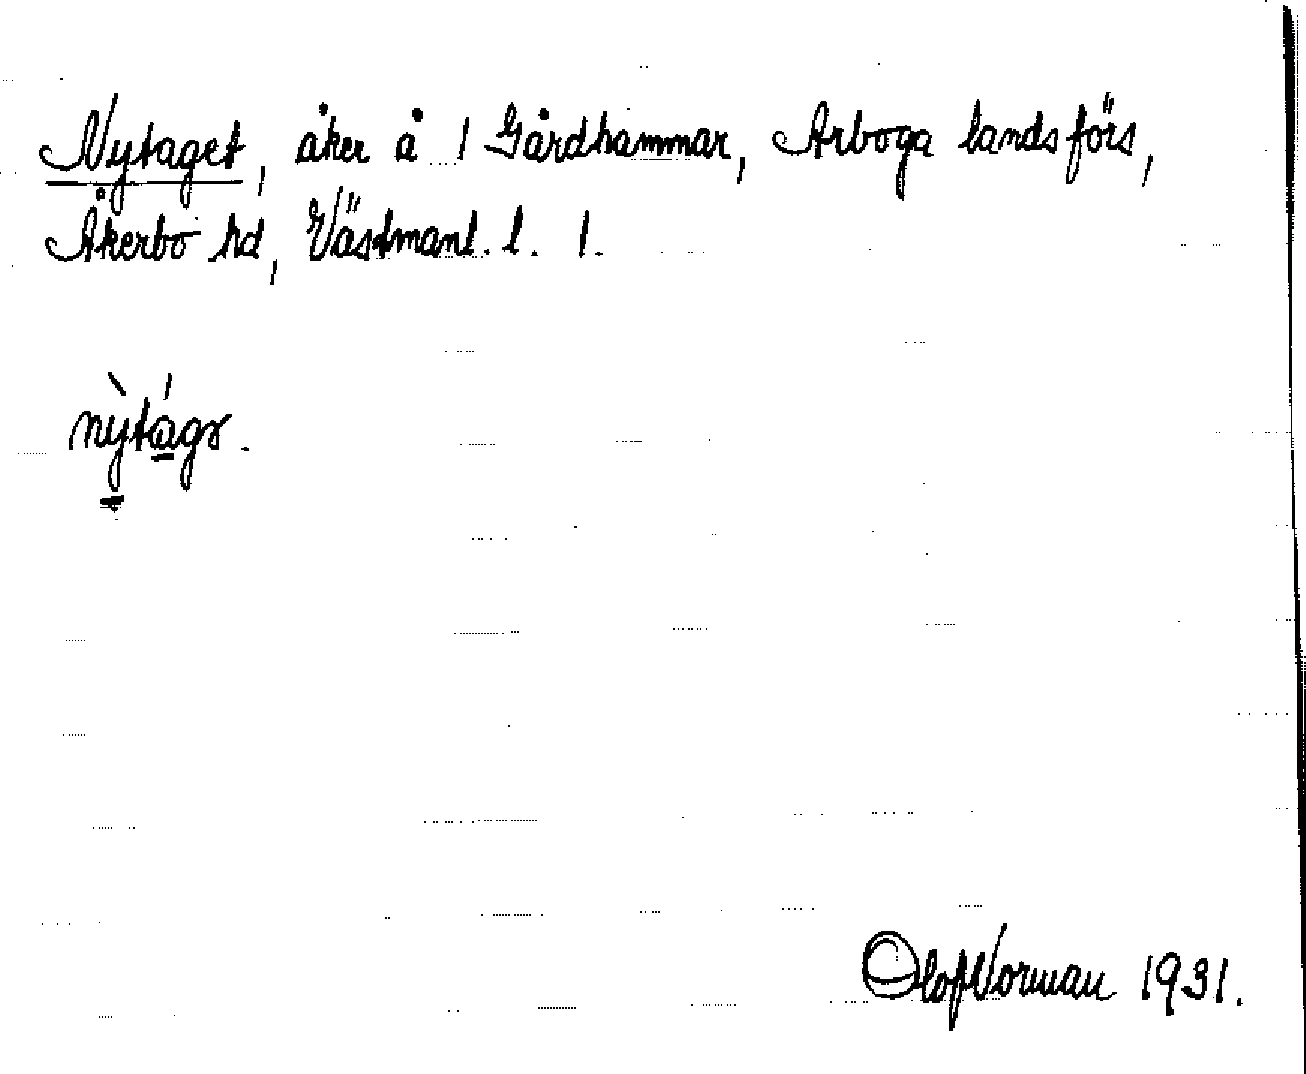 Nytaget, åker å 1 Gårdhammar, Arboga landsförs,
Åkerbo hd, Västmanl. l. 1.
nỳtágə.
Olof Norman 1931.